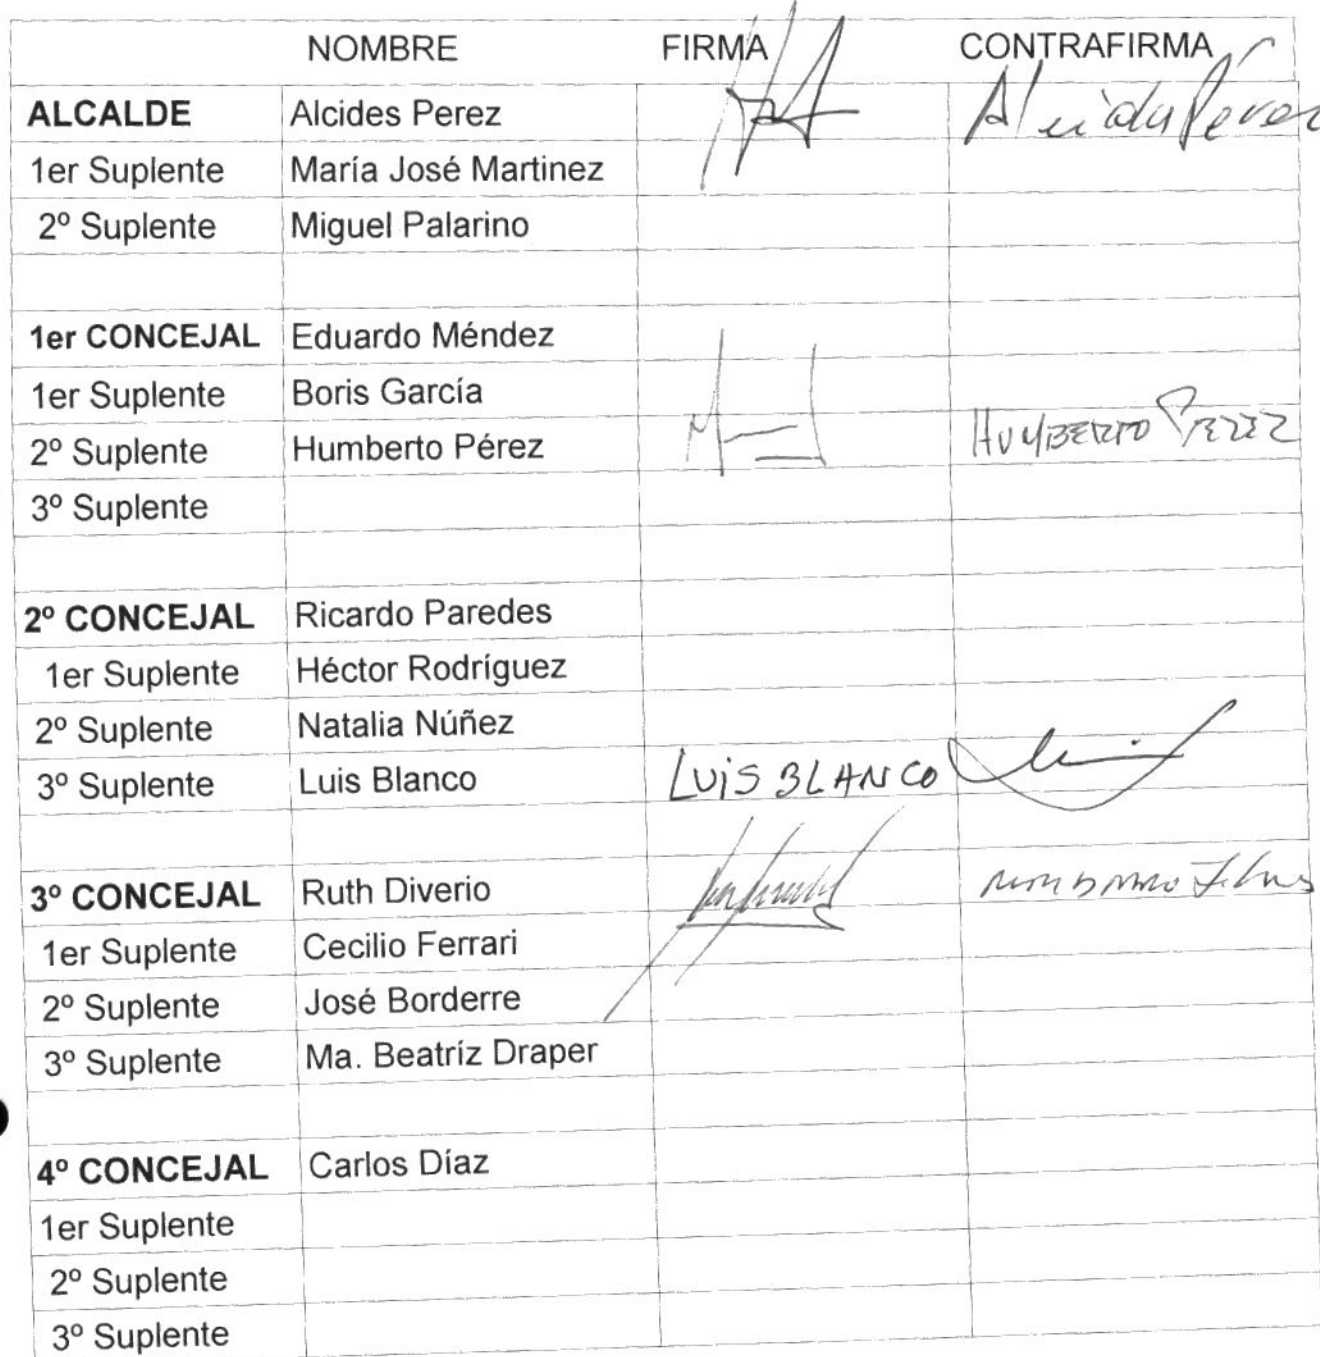 NOMBRE FIRMA CONTRAFIRMA
ALCALDE Alcides Perez Alcides Pérez
1er Suplente María José Martinez
2º Suplente Miguel Palarino
1er CONCEJAL Eduardo Méndez
1er Suplente Boris García
2º Suplente Humberto Pérez HUMBERTO PEREZ
3º Suplente
2º CONCEJAL Ricardo Paredes
1er Suplente Héctor Rodríguez
2º Suplente Natalia Núñez
3º Suplente Luis Blanco LUIS BLANCO
3º CONCEJAL Ruth Diverio
1er Suplente Cecilio Ferrari
2º Suplente José Borderre
3º Suplente Ma. Beatríz Draper
4º CONCEJAL Carlos Díaz
1er Suplente
2º Suplente
3º Suplente